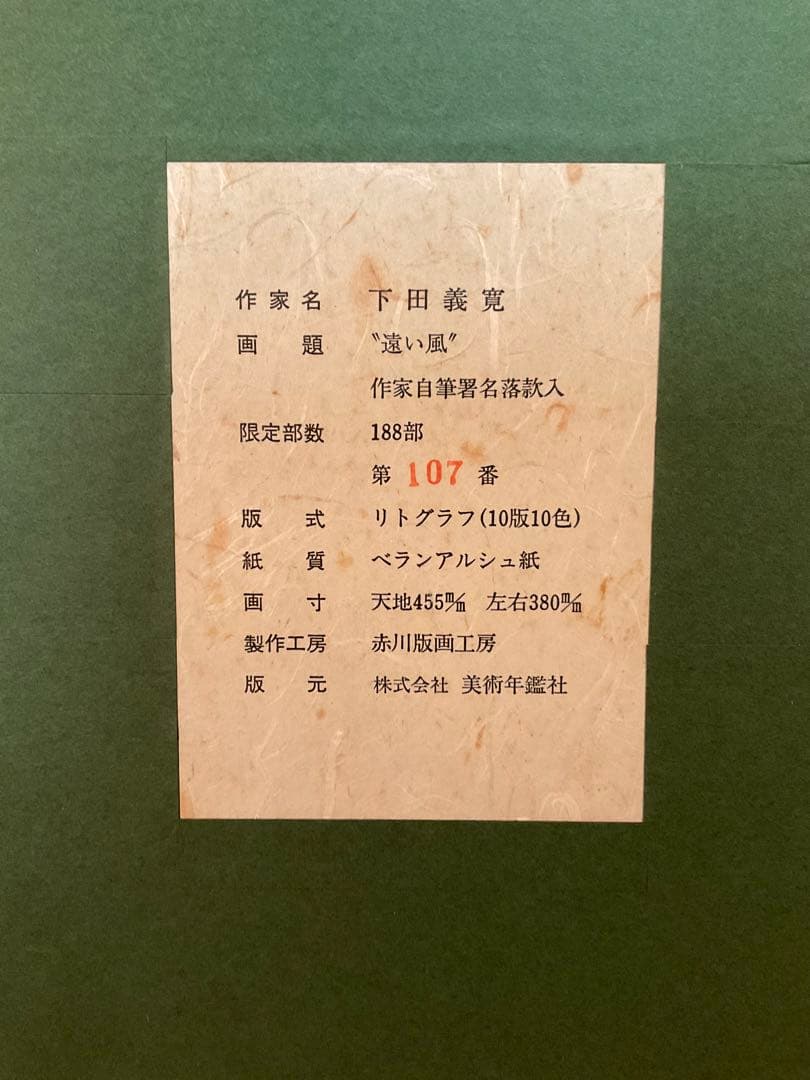 作家名 下田義寛
画題 〝遠い風〟
作家自筆署名落款入
限定部数 188部
第 107 番
版式 リトグラフ(10版10色)
紙質 ベランアルシュ紙
画寸 天地455m/m 左右380m/m
製作工房 赤川版画工房
版元 株式会社 美術年鑑社